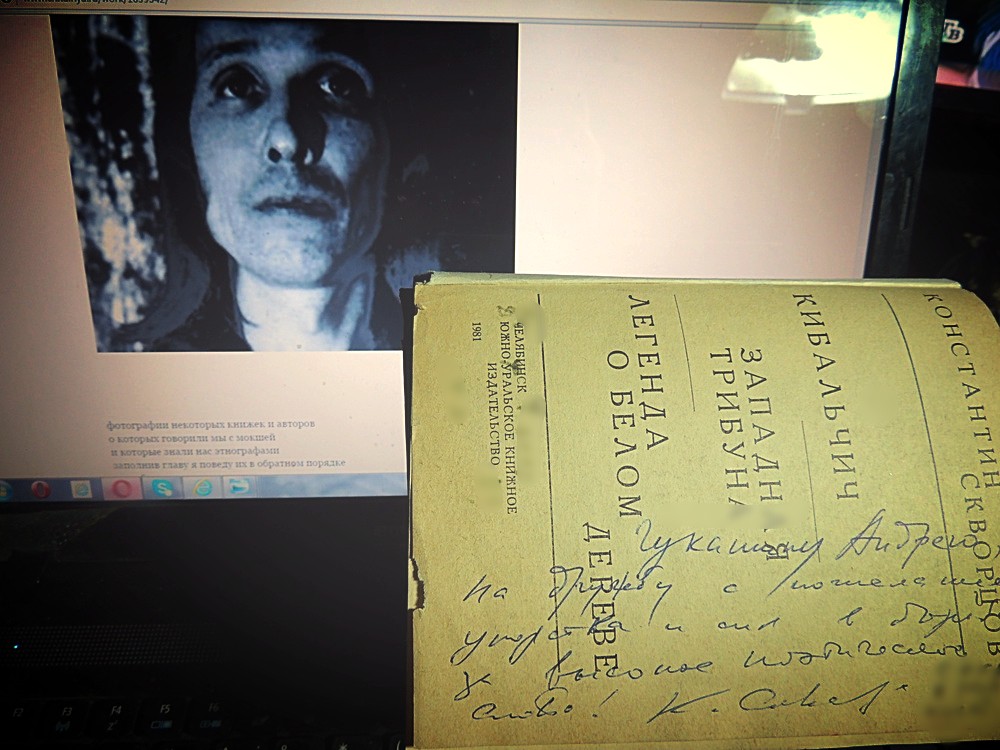 фотографии некоторых книжек и авторов
о которых говорили мы с мокшей
и которые знали нас этнографами
заполнив главу я поведу их в обратном порядке
КОНСТАНТИН СКВОРЦОВ
КИБАЛЬЧИЧ
ЗАПАДНАЯ
ТРИБУНА
ЛЕГЕНДА
О БЕЛОМ ДЕРЕВЕ
ЧЕЛЯБИНСК
ЮЖНО-УРАЛЬСКОЕ КНИЖНОЕ
ИЗДАТЕЛЬСТВО
1981
Андрею
на дружбу с
упорства и сил в
за высокое поэтическое
слово! К.
F2 F3 F4 F5 F6